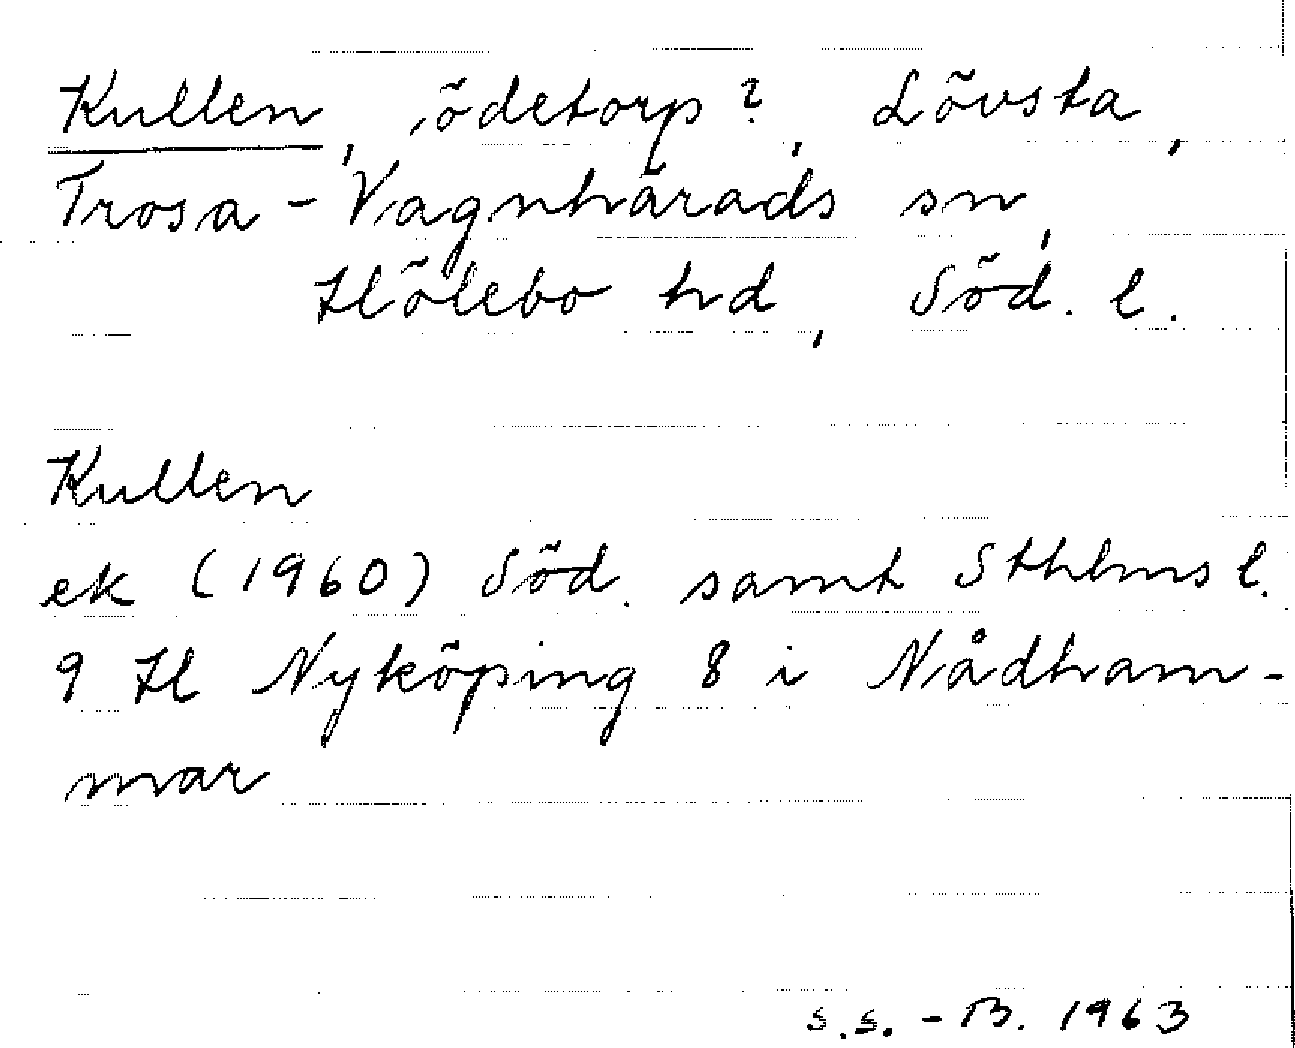 Kullen, ödetorp?, Lövsta,
Trosa-Vagnhärads sn,
Hölebo hd, Söd. l.
Kullen
ek (1960) Söd. samt Sthlms l.
9 H Nyköping 8 i Nådham-
mar
S.S. - B. 1963